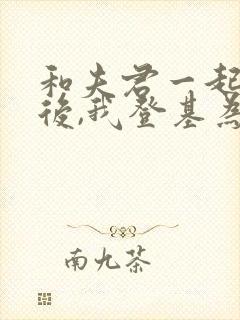 和夫君一起
後,我登基為
南九茶